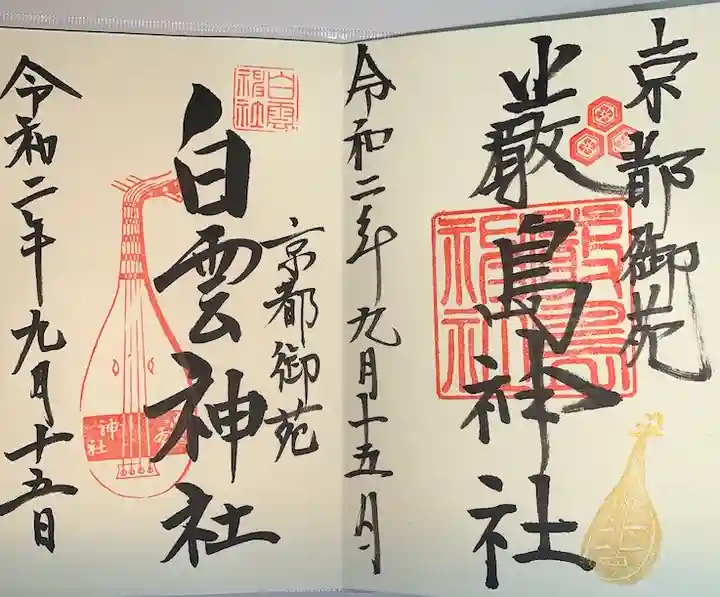 京都御苑
厳島神社
厳島神社
令和二年九月十五日
白雲神社
京都御苑
白雲神社
神社
令和二年九月十五日